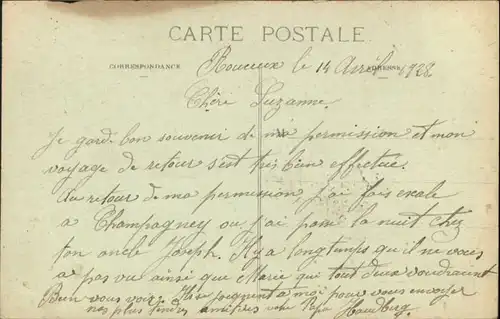 CARTE POSTALE
CORRESPONDANCE ADRESSE
le 14 Avril 1928
Chère Suzanne.
Je garde bon souvenir de ma permission et mon
voyage de retour s'est très bien effectué.
Au retour de ma permission j'ai fais escale
à Champagney ou j'ai passé la nuit chez
ton oncle Joseph. Il y a longtemps qu'il ne vous
a pas vu ainsi que Marie qui tout deux voudraient
Bien vous voir. Ils se joignent a moi pour vous envoyer
nos plus amitiés votre